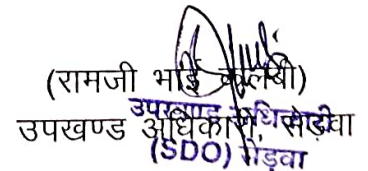 (रामजी भाई कलबी)
उपखण्ड अधिकारी
उपखण्ड अधिकारी, सेड़वा
(SDO) सेड़वा